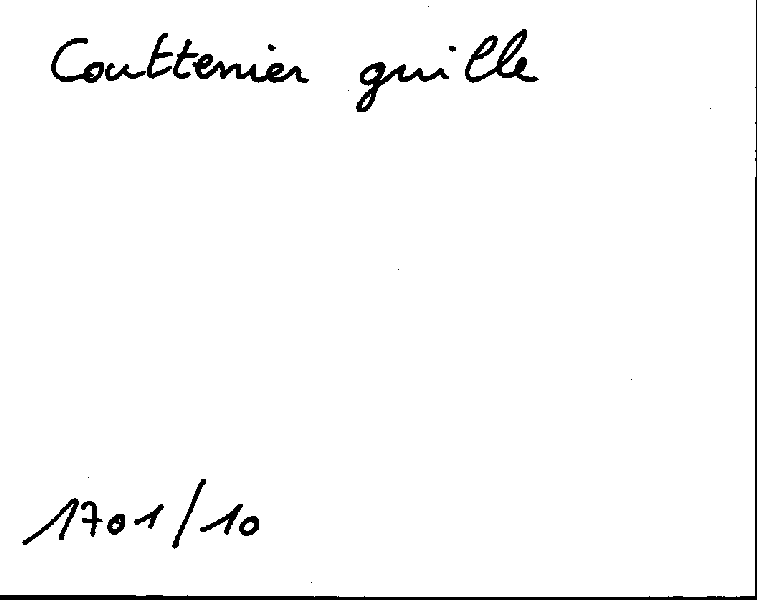 Couttenier guille
1701/10